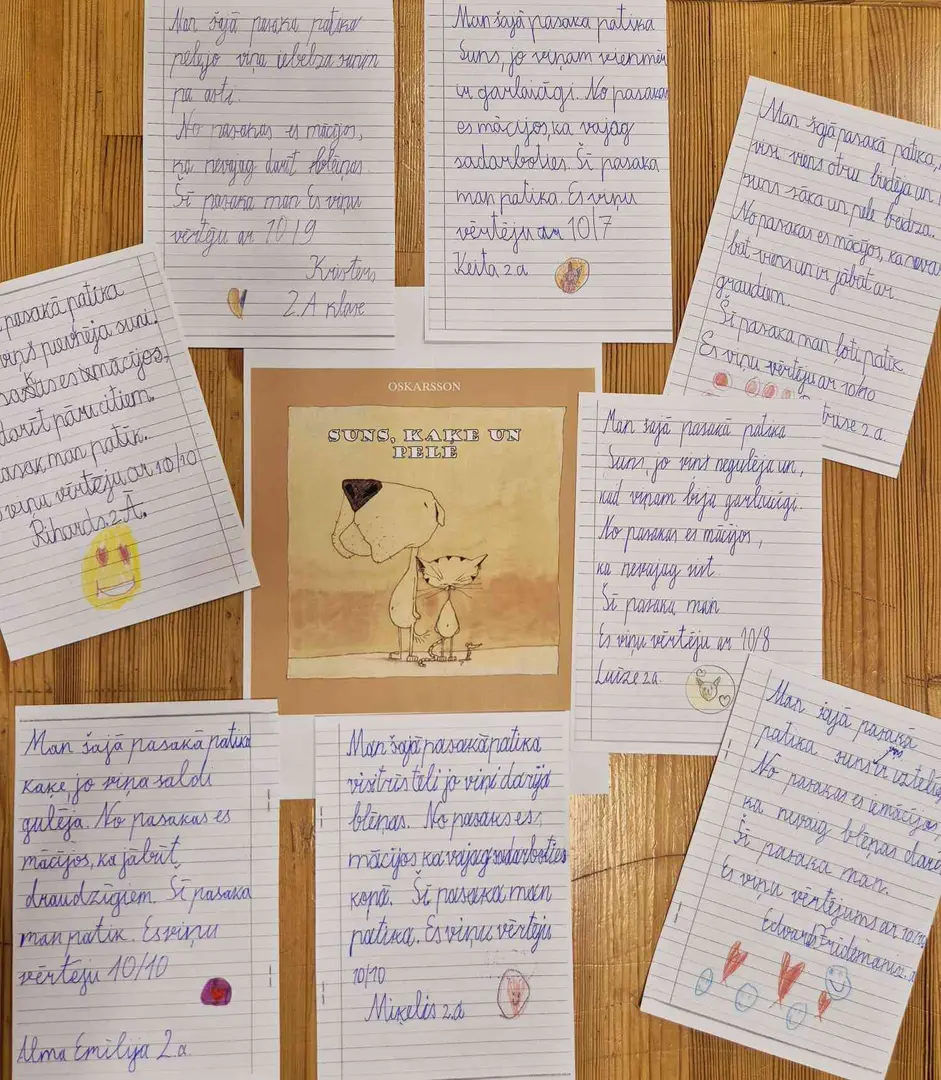 Man šajā pasaka patika
pelejo viņa iebelza sunim
pa asti.
No pasakas es mācījos,
ka nevajag darīt blēņas.
Šī pasaka man Es viņu
vērtēju ar 10/9
Kristers
2.A klase
Man šajā pasaka patika
Suns, jo viņam vienmēr
ir garlaicīgi. No pasakas
es mācījos, ka vajag
sadarboties. Šī pasaka
man patika. Es viņu
vērtēju ar 10/7
Keita 2.a
Man šajā pasakā patika,
visi viens otru biedēja un
suns sāka un pele beidza.
No pasakas es mācījos, ka nevar
būt viens un ir jābūt ar
graudiem.
Šī pasaka man ļoti patik
Es viņu vērtēju ar 10/10
2.a.
pasakā patika
viņš pamodināja suni.
es iemācījos,
darīt pāri citiem.
man patik.
viņu vērtēju ar 10/10
Rihards 2.A.
OSKARSSON
SUNS, KAĶE UN
PELE
Man šajā pasakā patika
Suns, jo viņš negulēja un,
kad viņam bija garlaicīgi.
No pasakas es mācījos,
ka nevajag
Šī pasaka man
Es viņu vērtēju ar 10/8
Luīze 2a.
Man šajā pasakā patika
kaķe jo viņa saldi
gulēja. No pasakas es
mācījos, ka jābūt
draudzīgiem. Šī pasaka
man patik. Es viņu
vērtēju 10/10
Alma Emilija 2.a.
Man šajā pasakā patika
visi trīs tēli jo viņi darīja
blēņas. No pasakas es,
mācījos ka vajag sadarboties
kopā. Šī pasaka man
patika. Es viņu vērtēju
10/10
Miķelis 2.a
Man šajā pasakā
patika suns
No pasakas es iemācījos,
ka nevaig blēņas darī
Šī pasaka man.
Es viņu vērtējums ar 10/10
Edvards Frīdemanis 2.a